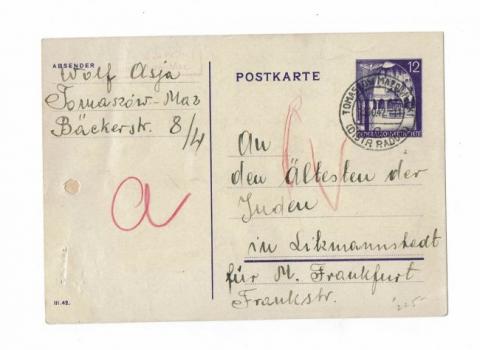 ABSENDER
Wolf Asja
Tomaszów-Maz
Bäckerstr. 8/4
POSTKARTE
12
TOMASZOW (MAZ
(DISTR RADOM
a
An
den Ältesten der
Juden
in Likmannstedt
für M. Frankfurt
Frankstr.
III.42.